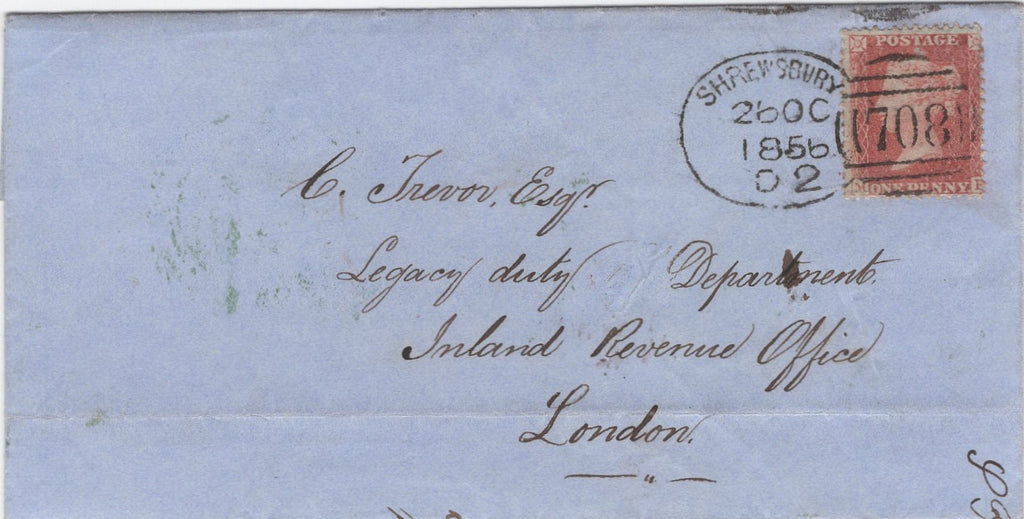 SHREWSBURY
26 OC
1856
708
POSTAGE
ONE PENNY
C. Trevor, Esqr.
Legacy duty Department.
Inland Revenue Office
London.